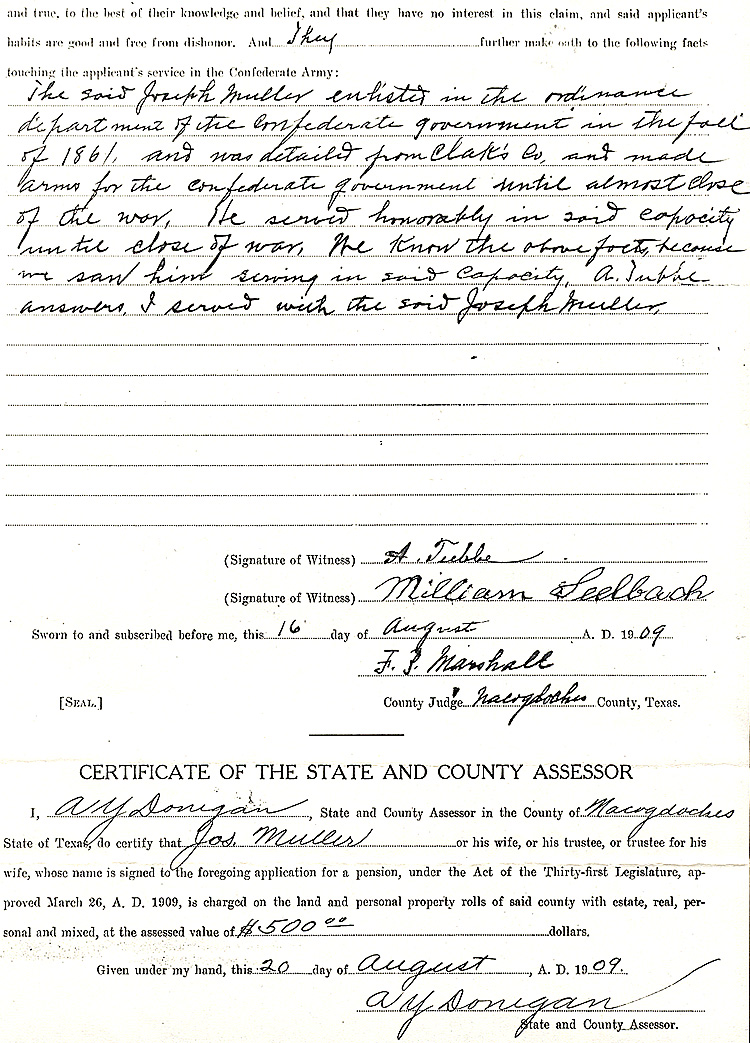 and true, to the best of their knowledge and belief, and that they have no interest in this claim, and said applicant's
habits are good and free from dishonor. And They further make oath to the following facts
touching the applicant's service in the Confederate Army:
The said Joseph Muller enlisted in the ordinance
department of the Confederate government in the fall
of 1861, and was detailed from Clak's Co, and made
arms for the confederate government until almost close
of the war, He served honorably in said capacity
until close of war, We Know the above facts, because
we saw him serving in said capacity, A. Tubbe
answers, I served with the said Joseph Muller,
(Signature of Witness) A. Tubbe
(Signature of Witness) William Seelbach
Sworn to and subscribed before me, this 16 day of August A. D. 1909
F. P. Marshall
[SEAL.] County Judge Nacogdoches County, Texas.
CERTIFICATE OF THE STATE AND COUNTY ASSESSOR
I, A Y Donegan, State and County Assessor in the County of Nacogdoches
State of Texas, do certify that Jos. Muller or his wife, or his trustee, or trustee for his
wife, whose name is signed to the foregoing application for a pension, under the Act of the Thirty-first Legislature, ap-
proved March 26, A. D. 1909, is charged on the land and personal property rolls of said county with estate, real, per-
sonal and mixed, at the assessed value of $500 00 dollars.
Given under my hand, this 20 day of August, A. D. 1909.
A Y Donegan
State and County Assessor.